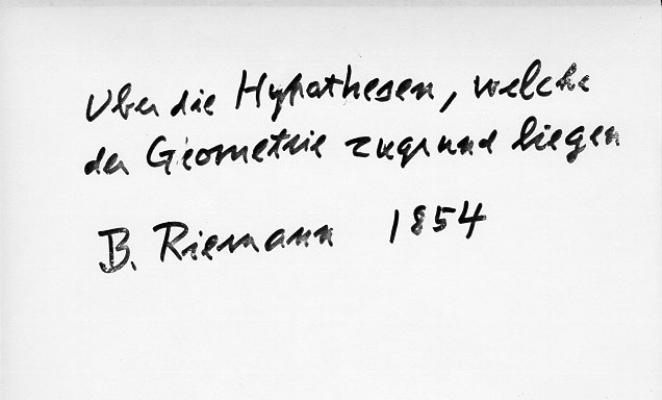 Uber die Hypothesen, welche
der Geometrie zugrund liegen
B. Riemann 1854